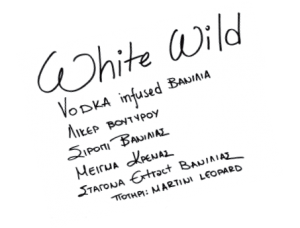 White Wild
VODKA infused ΒΑΝΙΛΙΑ
ΛΙΚΕΡ ΒΟΥΤΥΡΟΥ
ΣΙΡΟΠΙ ΒΑΝΙΛΙΑΣ
ΜΕΙΓΜΑ ΚΡΕΜΑΣ
ΣΤΑΓΟΝΑ Extract ΒΑΝΙΛΙΑΣ
ΠΟΤΗΡΙ: MARTINI LEOPARD